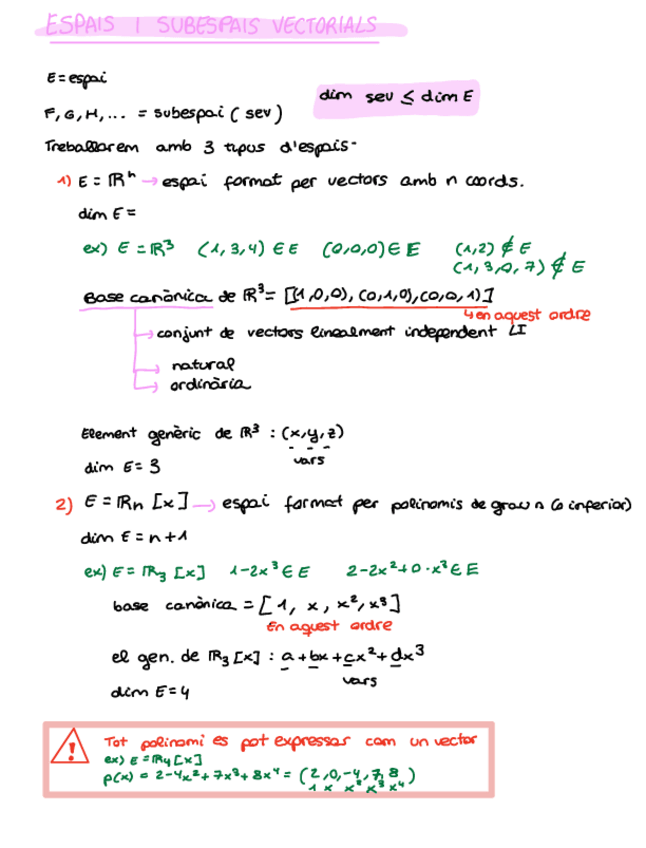 ESPAIS I SUBESPAIS VECTORIALS
E = espai
F, G, H, ... = subespai (sev)
dim sev ≤ dim E
Treballarem amb 3 tipus d'espais-
1) E = ℝⁿ → espai format per vectors amb n coords.
dim E =
ex) E = ℝ³ (1,3,4) ∈ E (0,0,0) ∈ E (1,2) ∉ E
(1,3,0,7) ∉ E
Base canònica de ℝ³ = [(1,0,0), (0,1,0), (0,0,1)]
↳ en aquest ordre
→ conjunt de vectors linealment independent LI
→ natural
→ ordinària
Element genèric de ℝ³ : (x,y,z)
vars
dim E = 3
2) E = ℝn [x] → espai format per polinomis de grau n (o inferior)
dim E = n+1
ex) E = ℝ₃ [x] 1-2x³ ∈ E 2-2x²+0·x³ ∈ E
base canònica = [1, x, x², x³]
En aquest ordre
el gen. de ℝ₃ [x] : a+bx+cx²+dx³
vars
dim E = 4
! Tot polinomi es pot expressar com un vector
ex) E = ℝ₄ [x]
p(x) = 2-4x²+7x³+8x⁴ = (2,0,-4,7,8)
1 x x² x³ x⁴